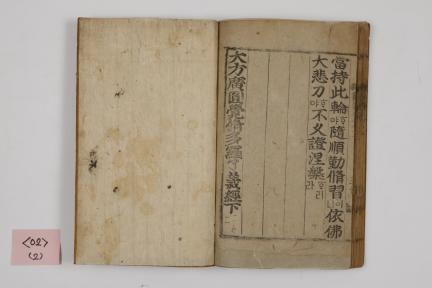 當持此輪ᄒᆞ야隨順勤脩習依佛
大悲力야不久證涅槃ᄒᆞ리라
大方廣圓覺脩多羅了義經下
<02>
(2)